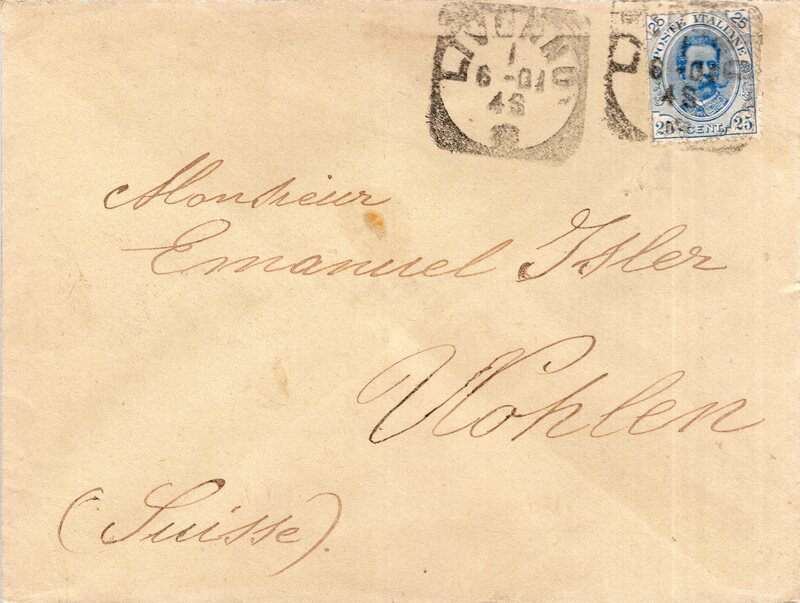 LIVORNO
1
6-01
4S
25 25
POSTE ITALIANE
6-01
4S
25 CENT. 25
Monsieur
Emanuel Isler
Wohlen
(Suisse).